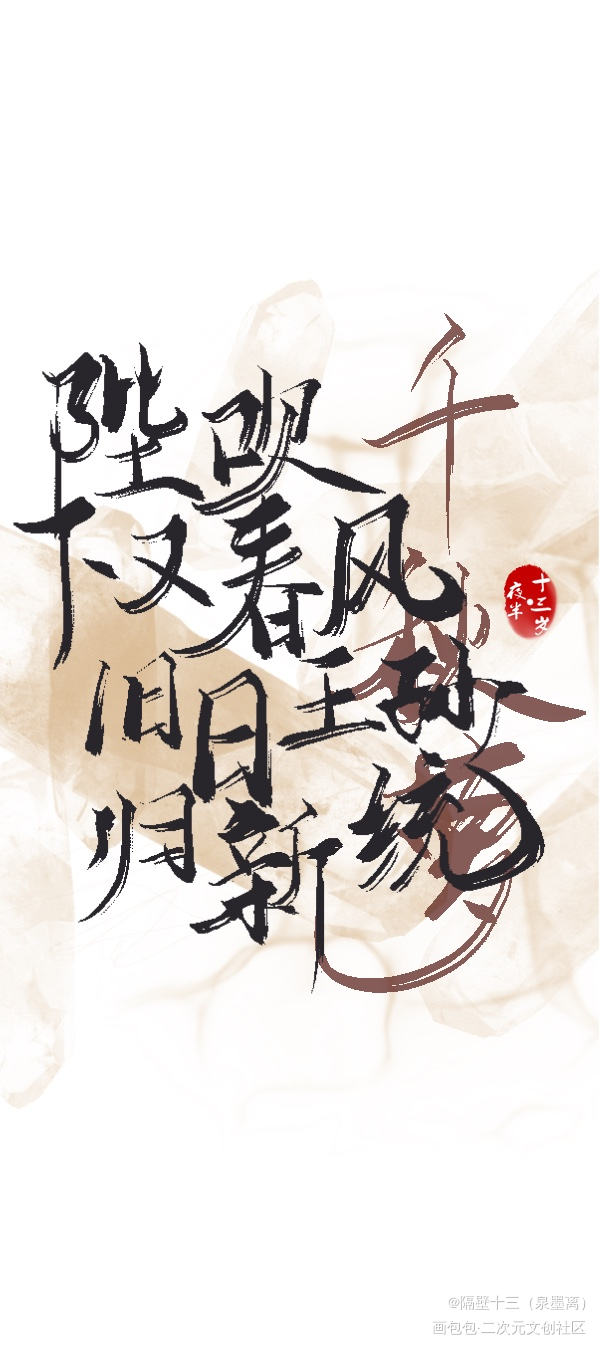 千秋梦
陛下又吹春风
旧日王孙
归新统
夜半·十三岁
@隔壁十三（泉墨离）
画包包·二次元文创社区